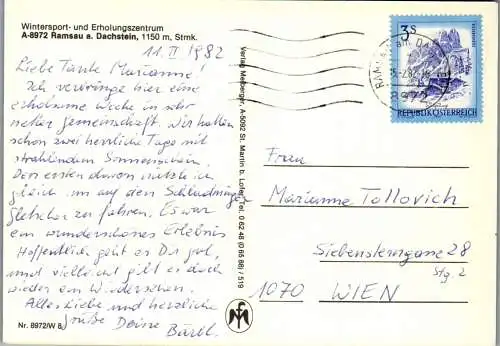 Wintersport- und Erholungszentrum
A-8972 Ramsau a. Dachstein, 1150 m, Stmk.
11. II 1982
Liebe Tante Marianne!
Ich verbringe hier eine
erholsame Woche in sehr
netter Gemeinschaft. Wir hatten
schon zwei herrliche Tage mit
strahlendem Sonnenschein.
Den ersten davon nützte ich
gleich um auf den Schladminger
Gletscher zu fahren. Es war
ein wunderschönes Erlebnis
Hoffentlich geht es Dir gut,
und vielleicht gibt es doch
wieder ein Wiedersehen.
Alles Liebe und herzliche
Grüße Deine
Bärbl.
Nr. 8972/W 8
Verlag Meiberger, A-5092 St. Martin b. Lofer, Tel. 0 62 48 (0 65 88) / 519
3S
REPUBLIK ÖSTERREICH
RAMSAU AM DACHSTEIN
8972
Frau
Marianne Tollovich
Siebensterngasse 28
Stg. 2
1070 WIEN